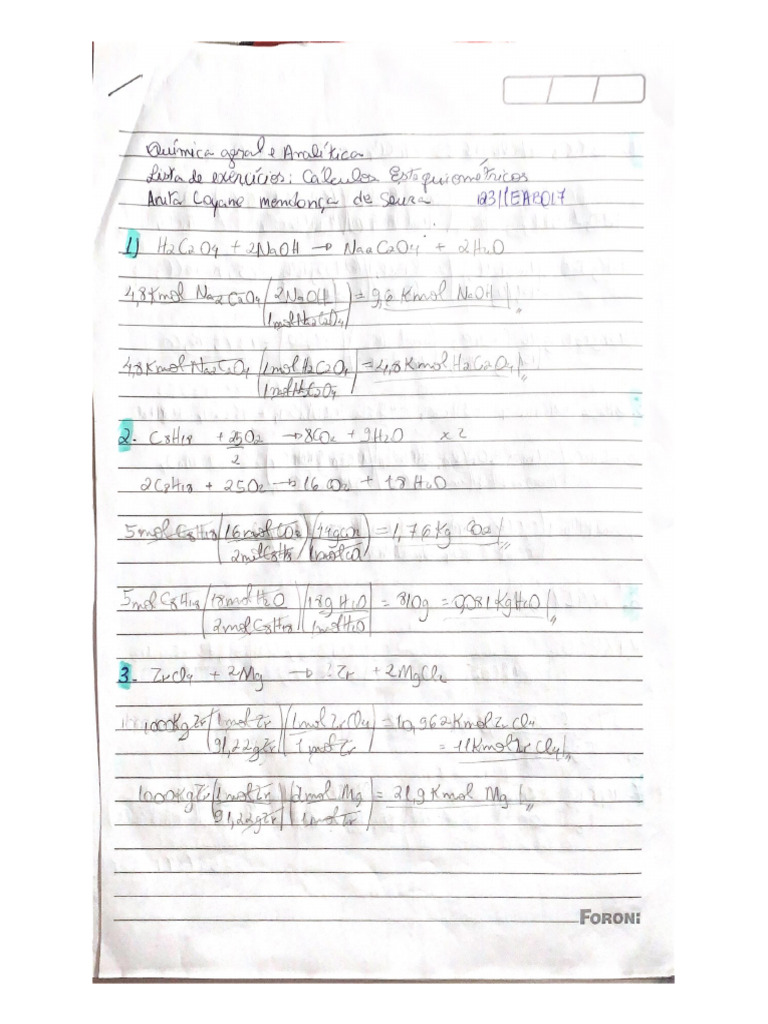 Química geral e Analítica
Lista de exercícios: Cálculos Estequiométricos
Anita Coyane mendonça de Souza 123//EAE017
1) H2C2O4 + 2NaOH → Na2C2O4 + 2H2O
4,8Kmol Na2C2O4 (2NaOH / 1molNa2C2O4) = 9,6 Kmol NaOH
4,8Kmol Na2C2O4 (1mol H2C2O4 / 1molNa2C2O4) = 4,8Kmol H2C2O4
2. C8H18 + 25O2/2 → 8CO2 + 9H2O x2
2C8H18 + 25O2 → 16CO2 + 18H2O
5molC8H18 (16molCO2 / 2molC8H18) (44gCO2 / 1molCO2) = 1,76Kg CO2
5molC8H18 (18molH2O / 2molC8H18) (18gH2O / 1molH2O) = 810g = 0,081KgH2O
3. ZrCl4 + 2Mg → Zr + 2MgCl2
1000KgZr (1molZr / 91,22gZr) (1molZrCl4 / 1molZr) = 10,962KmolZrCl4
= 11KmolZrCl4
1000KgZr (1molZr / 91,22gZr) (2mol Mg / 1molZr) = 21,9Kmol Mg
FORONI